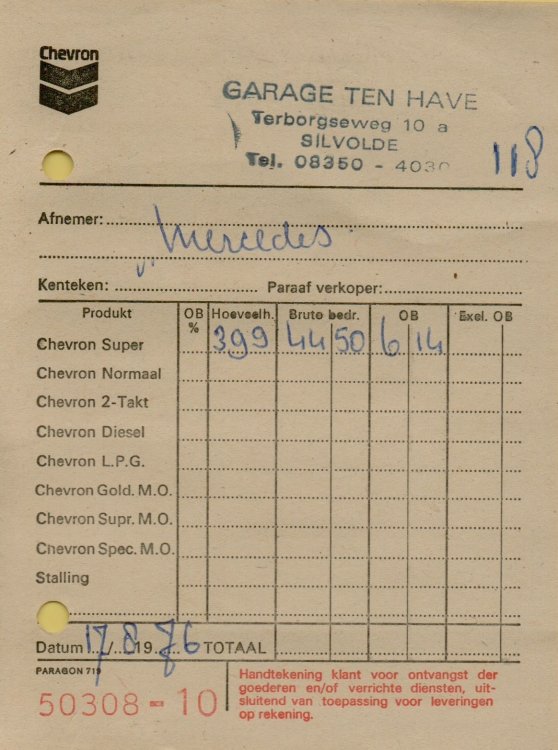 Chevron
GARAGE TEN HAVE
Terborgseweg 10 a
SILVOLDE
Tel. 08350 - 4030
118
Afnemer:
Mercedes
Kenteken: Paraaf verkoper:
Produkt OB % Hoeveelh. Bruto bedr. OB Excl. OB
Chevron Super 399 44 50 6 14
Chevron Normaal
Chevron 2-Takt
Chevron Diesel
Chevron L.P.G.
Chevron Gold. M.O.
Chevron Supr. M.O.
Chevron Spec. M.O.
Stalling
Datum 17/8 1976 TOTAAL
PARAGON 719
50308 - 10
Handtekening klant voor ontvangst der
goederen en/of verrichte diensten, uit-
sluitend van toepassing voor leveringen
op rekening.